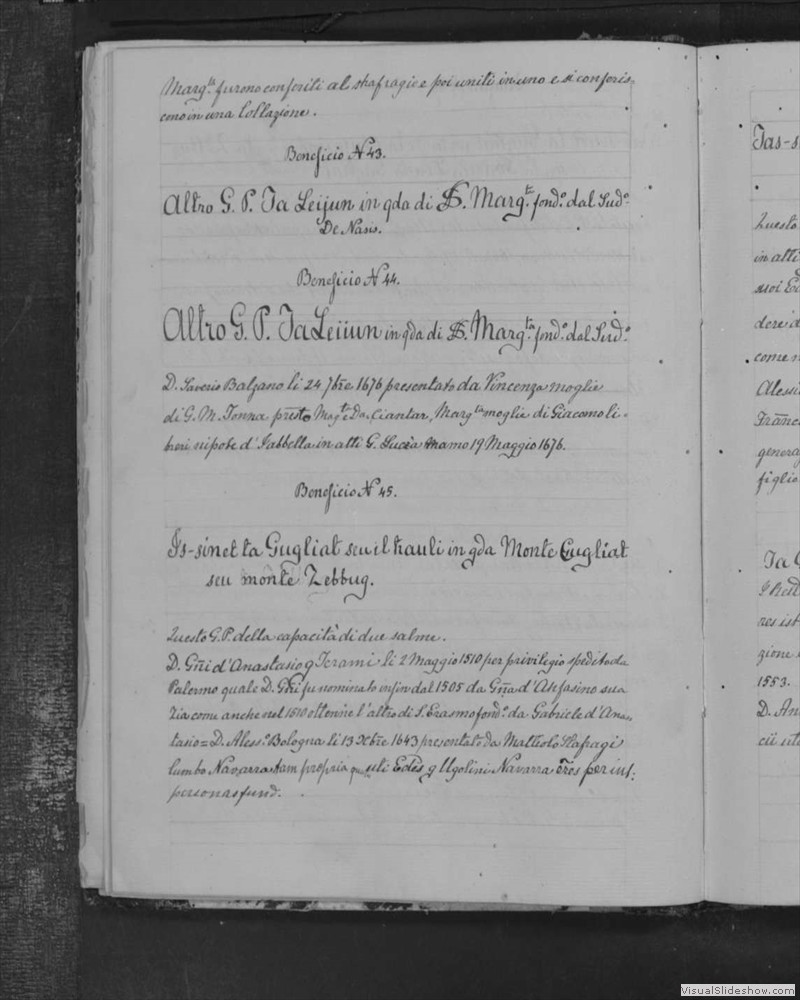 Marg.ta furono conferiti al shafragio e poi uniti in uno e si conferis=
cono in una Collazione.
Beneficio N.43.
Altro G. P. Ta Leijun in qda di S. Marg.ta fond.o dal Sud.o
De Nasis.
Beneficio N.44.
Altro G. P. Ta Leiiun in qda di S. Marg.ta fond.o dal Sud.o
D. Saverio Balzano li 24 7bre 1676 presentato da Vincenza moglie
di G. M. Tonna Marg.ta moglie di Giacomo li=
beri nipote d'Isabbella in atti G. Lucia 19 Maggio 1676.
Beneficio N.45.
Is-sinet ta Gugliat seu il hauli in qda Monte Gugliat
seu monte Zebbug.
Questo G.P. della capacità di due salme.
D. Gñi d'Anastasio q Terami li 2 Maggio 1510 per privilegio spedito da
Palermo quale D. Gñi fu nominato infin dal 1505 da Gña d'Anfasino sua
Zia come anche nel 1510 ottenne l'altro di S. Erasmo fond.o da Gabriele d'Anas=
tasio = D. Aless.o Bologna li 13 Xbre 1643 presentato da Matteolo
Navarra tam propria uti Edes q Ugolini Navarra Tres per inf:
personas fund.
Tas-s
Questo
in atti
come n
Alessi
Franc
genera
figlio
Ta G
res ist
zione
1553.
D. An
VisualSlideshow.com